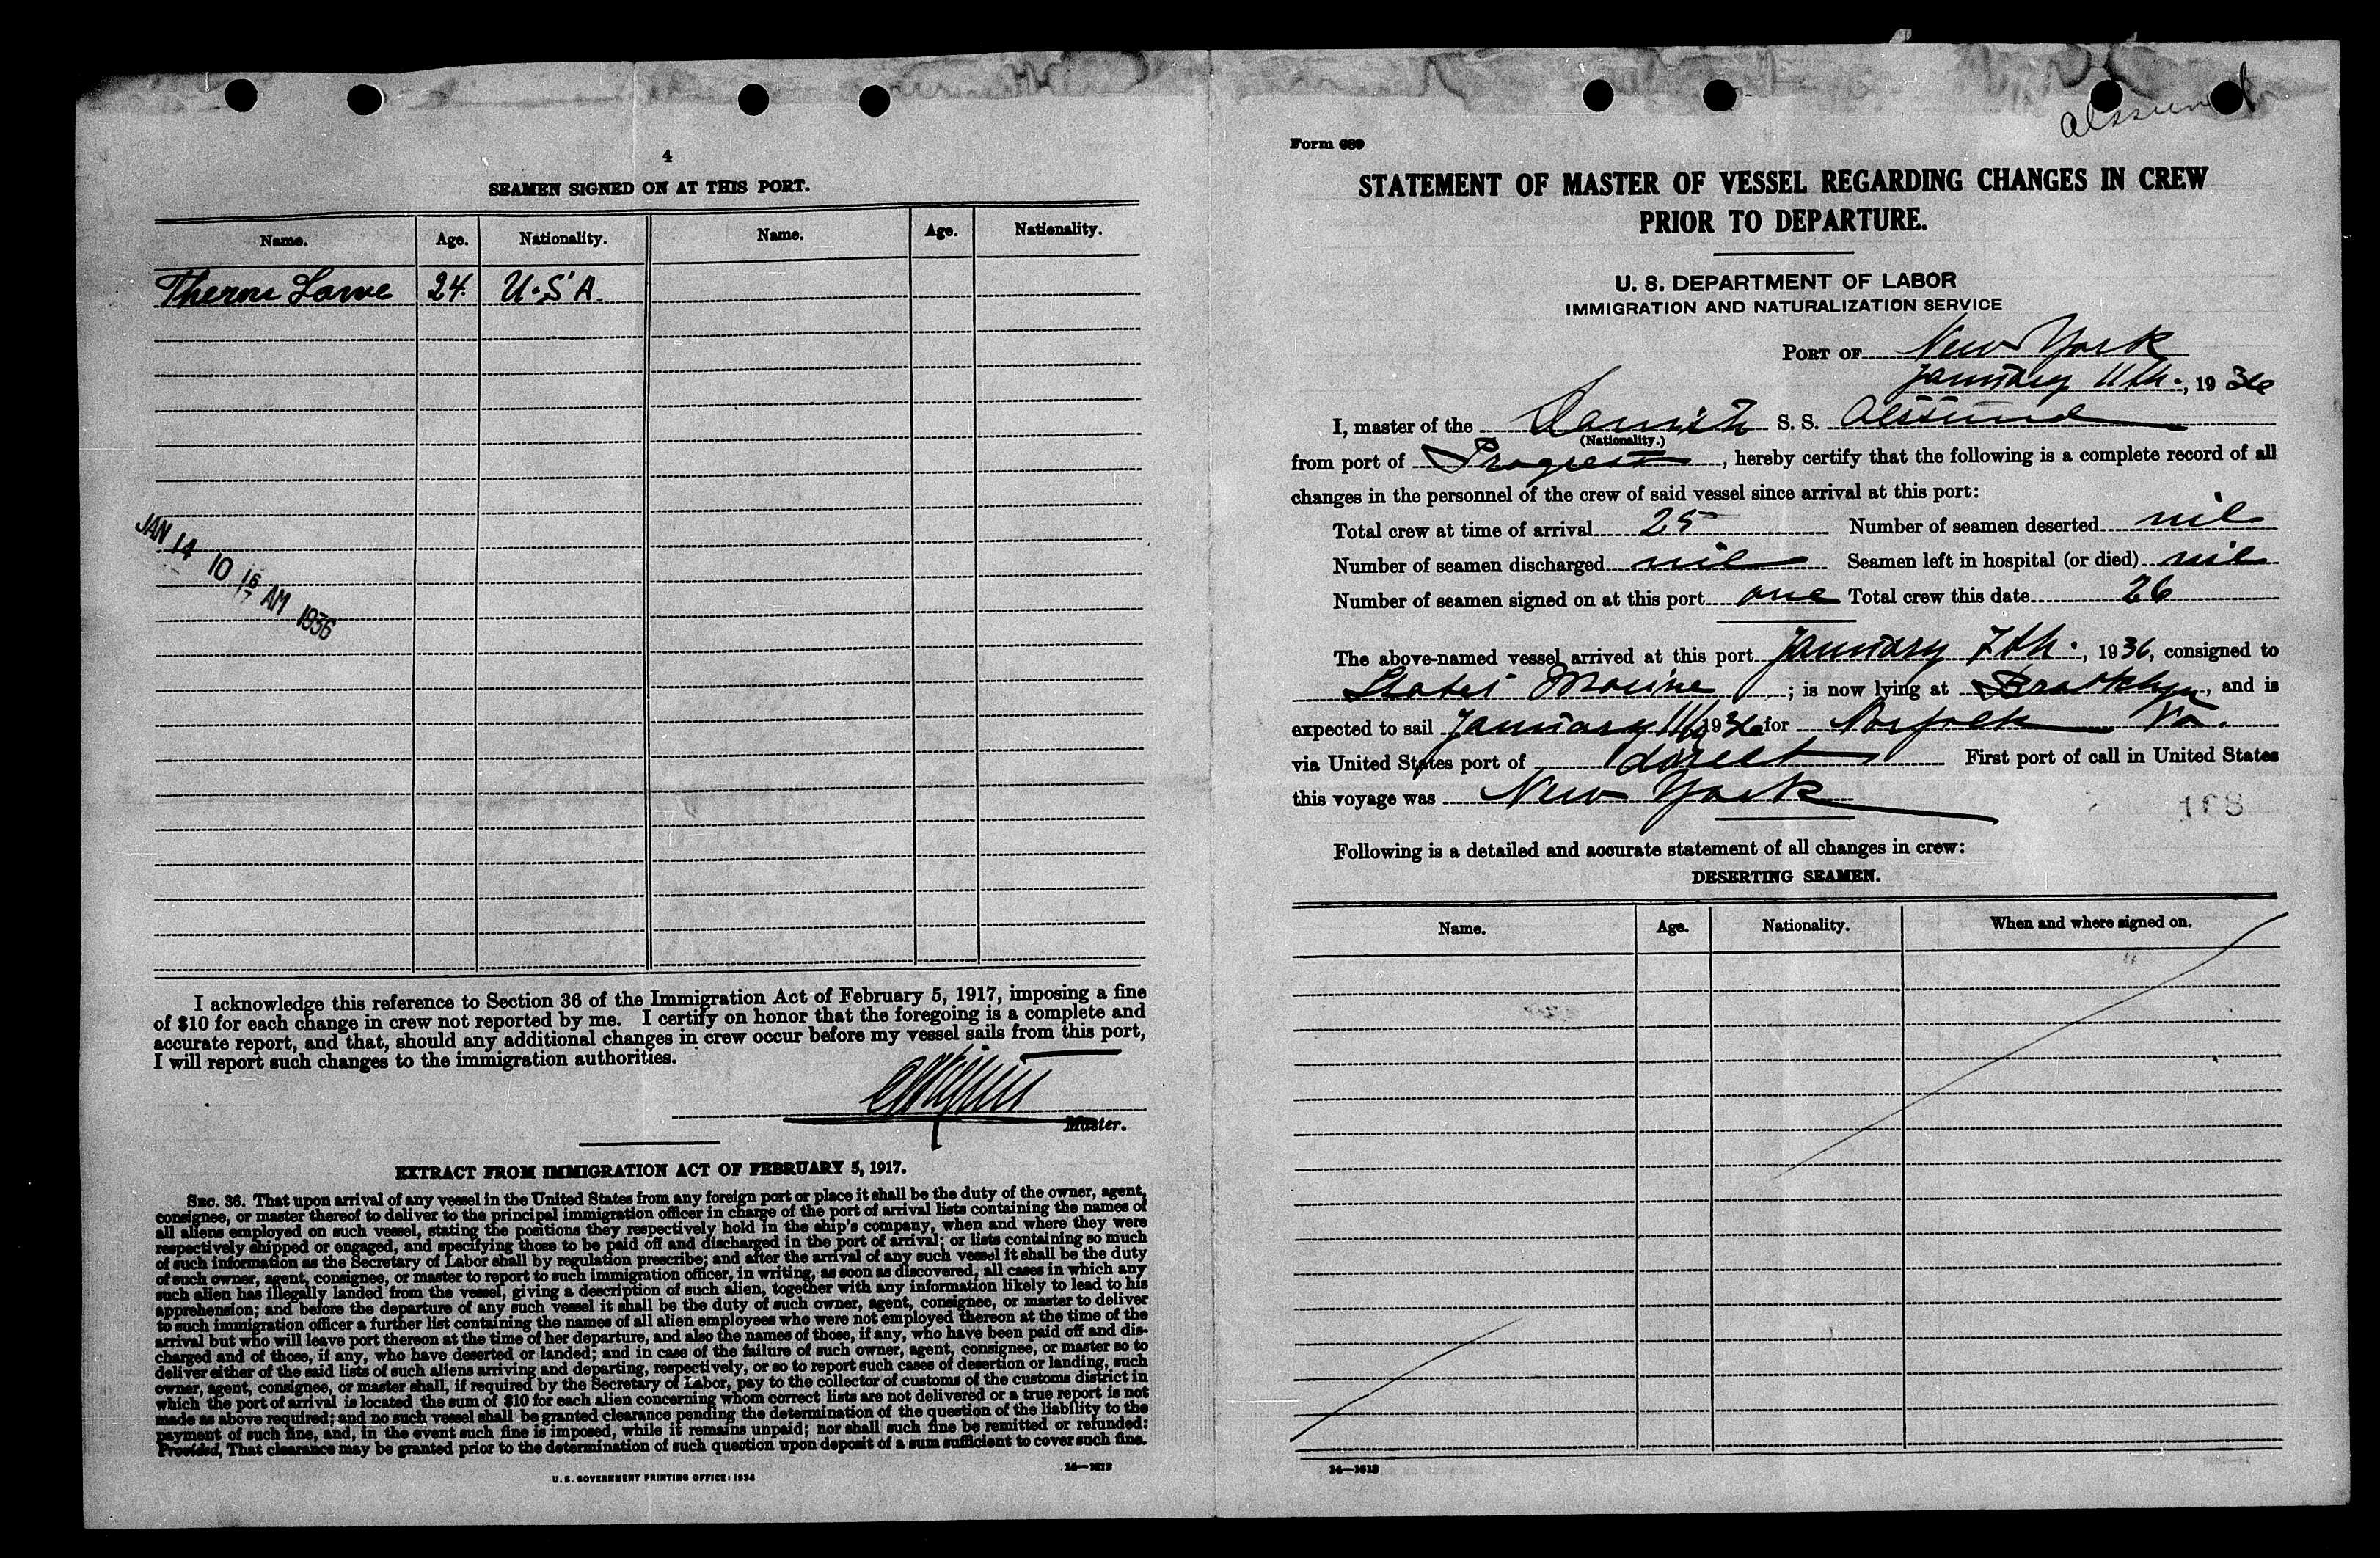 4
SEAMEN SIGNED ON AT THIS PORT.
Name. Age. Nationality. Name. Age. Nationality.
24. U.S.A.
JAN 14 10 AM 1936
I acknowledge this reference to Section 36 of the Immigration Act of February 5, 1917, imposing a fine
of $10 for each change in crew not reported by me. I certify on honor that the foregoing is a complete and
accurate report, and that, should any additional changes in crew occur before my vessel sails from this port,
I will report such changes to the immigration authorities.
Master.
EXTRACT FROM IMMIGRATION ACT OF FEBRUARY 5, 1917.
SEC. 36. That upon arrival of any vessel in the United States from any foreign port or place it shall be the duty of the owner, agent,
consignee, or master thereof to deliver to the principal immigration officer in charge of the port of arrival lists containing the names of
all aliens employed on such vessel, stating the positions they respectively hold in the ship's company, when and where they were
respectively shipped or engaged, and specifying those to be paid off and discharged in the port of arrival; or lists containing so much
of such information as the Secretary of Labor shall by regulation prescribe; and after the arrival of any such vessel it shall be the duty
of such owner, agent, consignee, or master to report to such immigration officer, in writing, as soon as discovered, all cases in which any
such alien has illegally landed from the vessel, giving a description of such alien, together with any information likely to lead to his
apprehension; and before the departure of any such vessel it shall be the duty of such owner, agent, consignee, or master to deliver
to such immigration officer a further list containing the names of all alien employees who were not employed thereon at the time of the
arrival but who will leave port thereon at the time of her departure, and also the names of those, if any, who have been paid off and dis-
charged and of those, if any, who have deserted or landed; and in case of the failure of such owner, agent, consignee, or master so to
deliver either of the said lists of such aliens arriving and departing, respectively, or so to report such cases of desertion or landing, such
owner, agent, consignee, or master shall, if required by the Secretary of Labor, pay to the collector of customs of the customs district in
which the port of arrival is located the sum of $10 for each alien concerning whom correct lists are not delivered or a true report is not
made as above required; and no such vessel shall be granted clearance pending the determination of the question of the liability to the
payment of such fine, and, in the event such fine is imposed, while it remains unpaid; nor shall such fine be remitted or refunded:
Provided, That clearance may be granted prior to the determination of such question upon deposit of a sum sufficient to cover such fine.
U. S. GOVERNMENT PRINTING OFFICE: 1934
Form 689
STATEMENT OF MASTER OF VESSEL REGARDING CHANGES IN CREW
PRIOR TO DEPARTURE.
U. S. DEPARTMENT OF LABOR
IMMIGRATION AND NATURALIZATION SERVICE
PORT OF New York
January 11th., 1936
I, master of the Danish S. S. Alssund
(Nationality.)
from port of Progreso, hereby certify that the following is a complete record of all
changes in the personnel of the crew of said vessel since arrival at this port:
Total crew at time of arrival 25 Number of seamen deserted nil
Number of seamen discharged nil Seamen left in hospital (or died) nil
Number of seamen signed on at this port one Total crew this date 26
The above-named vessel arrived at this port January 7th., 1936, consigned to
States Marine; is now lying at Brooklyn, and is
expected to sail January 11th 1936 for Norfolk Va.
via United States port of direct First port of call in United States
this voyage was New York
Following is a detailed and accurate statement of all changes in crew:
DESERTING SEAMEN.
Name. Age. Nationality. When and where signed on.